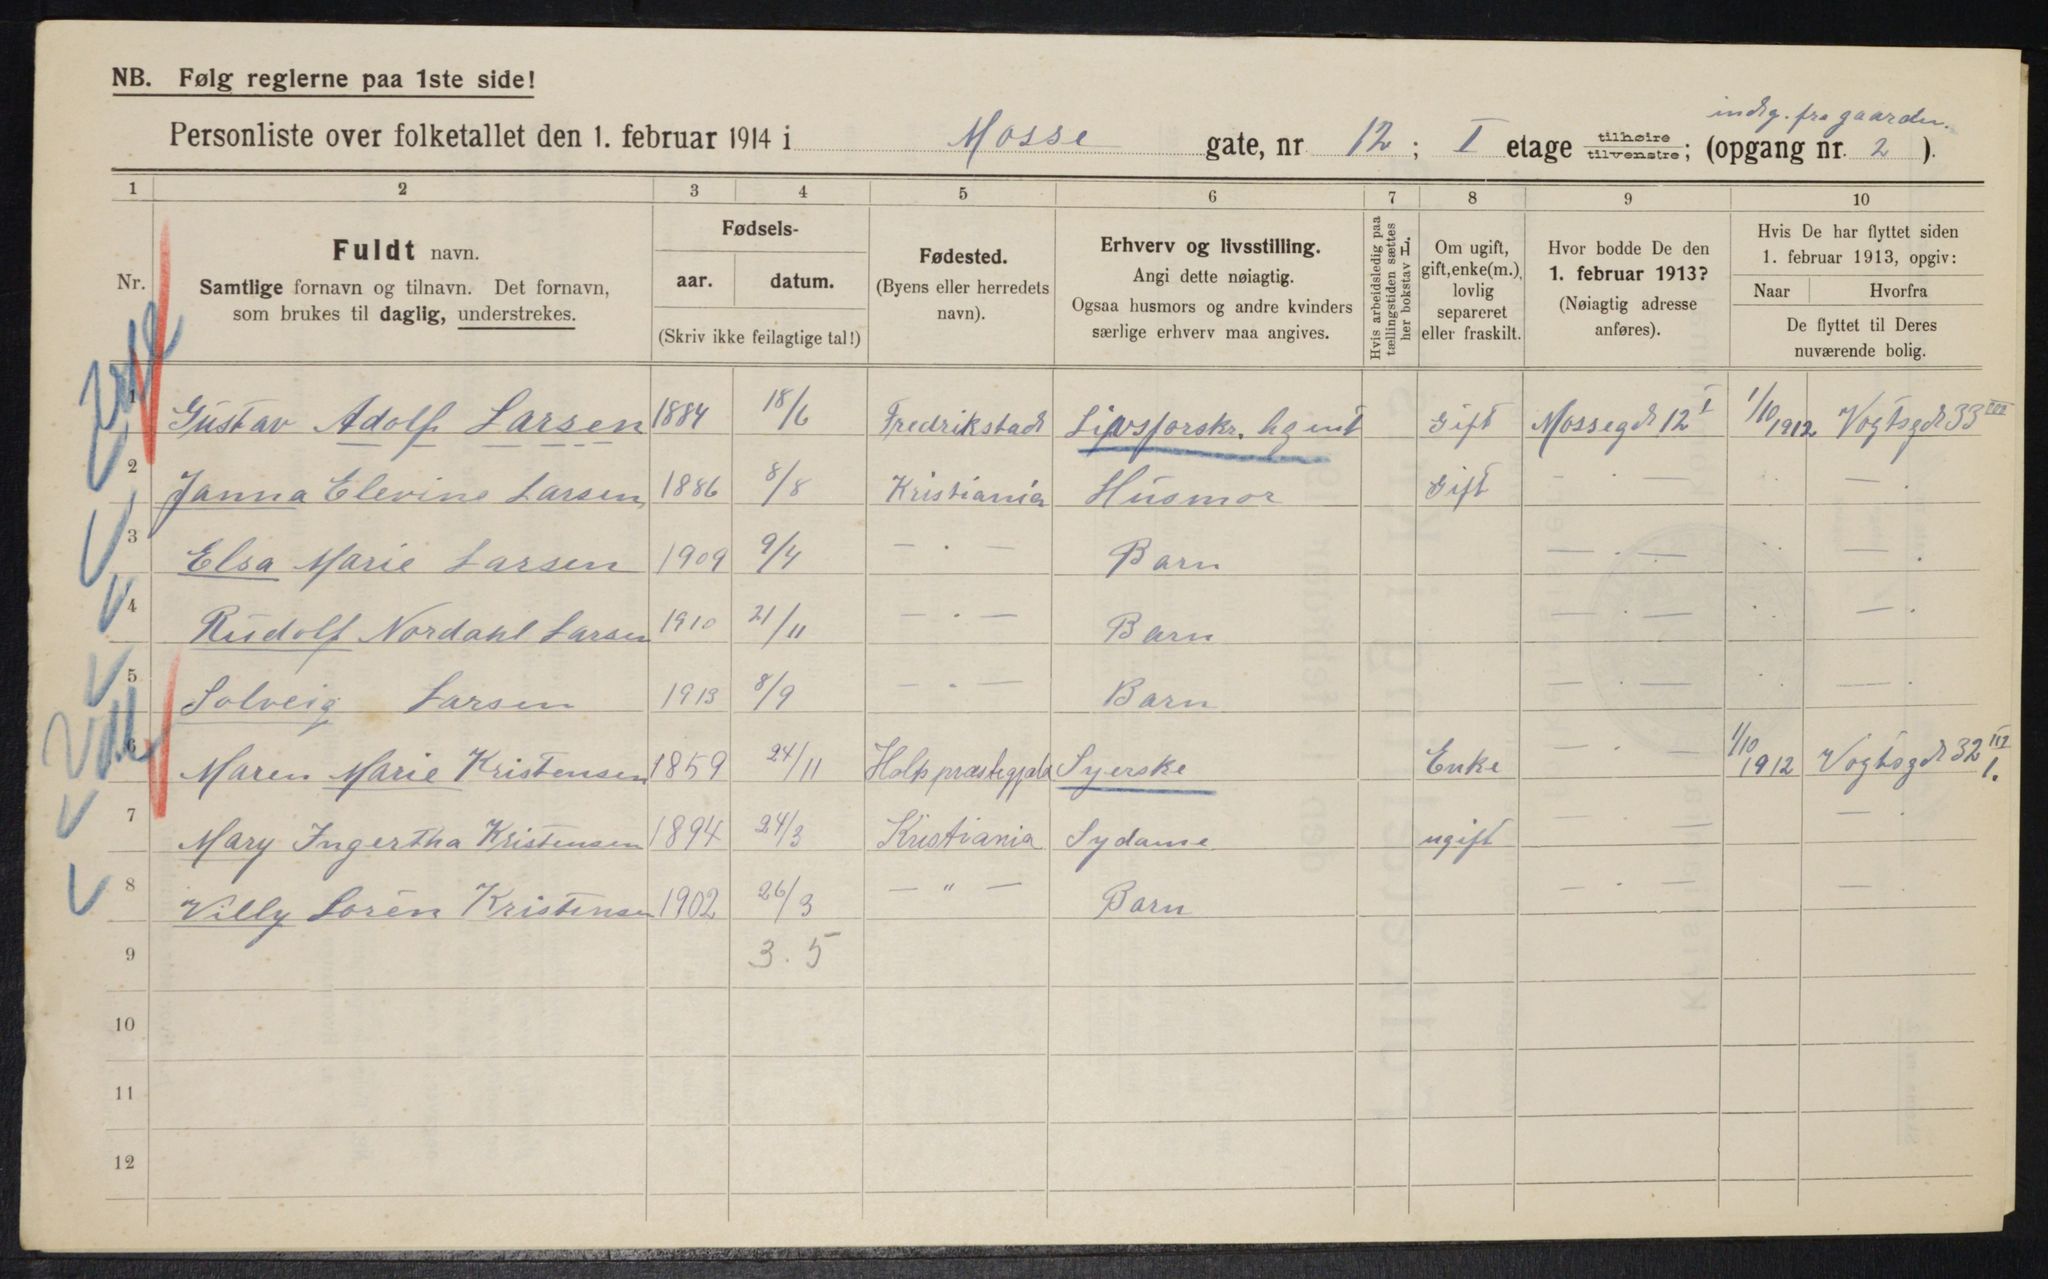 NB. Følg reglerne paa 1ste side!
indg. fra gaarden.
Personliste over folketallet den 1. februar 1914 i Mosse gate, nr 12; I etage tilhøire tilvenstre; (opgang nr. 2).
1 2 3 4 5 6 7 8 9 10
Nr.
Fuldt navn.
Samtlige fornavn og tilnavn. Det fornavn,
som brukes til daglig, understrekes.
Fødsels-
aar. datum.
(Skriv ikke feilagtige tal!)
Fødested.
(Byens eller herredets
navn).
Erhverv og livsstilling.
Angi dette nøiagtig.
Ogsaa husmors og andre kvinders
særlige erhverv maa angives.
Hvis arbeidsledig paa
tællingstiden sættes
her bokstav H.
Om ugift,
gift, enke(m.),
lovlig
separeret
eller fraskilt.
Hvor bodde De den
1. februar 1913?
(Nøiagtig adresse
anføres).
Hvis De har flyttet siden
1. februar 1913, opgiv:
Naar Hvorfra
De flyttet til Deres
nuværende bolig.
1 Gustav Adolf Larsen 1884 18/6 Fredrikstad Livsforskr. Agent Gift Mossegd 12 I 1/10 1912 Vogtsgd 33 III
2 Janna Elevine Larsen 1886 8/8 Kristiania Husmor Gift — . — . — .
3 Elsa Marie Larsen 1909 9/4 — . — Barn — . — — .
4 Rudolf Nordahl Larsen 1910 21/11 — . — Barn — . — — .
5 Solveig Larsen 1913 8/9 — . — Barn — . — — .
6 Maren Marie Kristensen 1859 24/11 Syerske Enke — . — 1/10 1912 Vogtsgd 32 III 1.
7 Mary Ingertha Kristensen 1894 24/3 Kristiania Sydame ugift — . — —
8 Villy Sorén Kristensen 1902 26/3 — " — Barn — . — —
9 3. 5
10
11
12